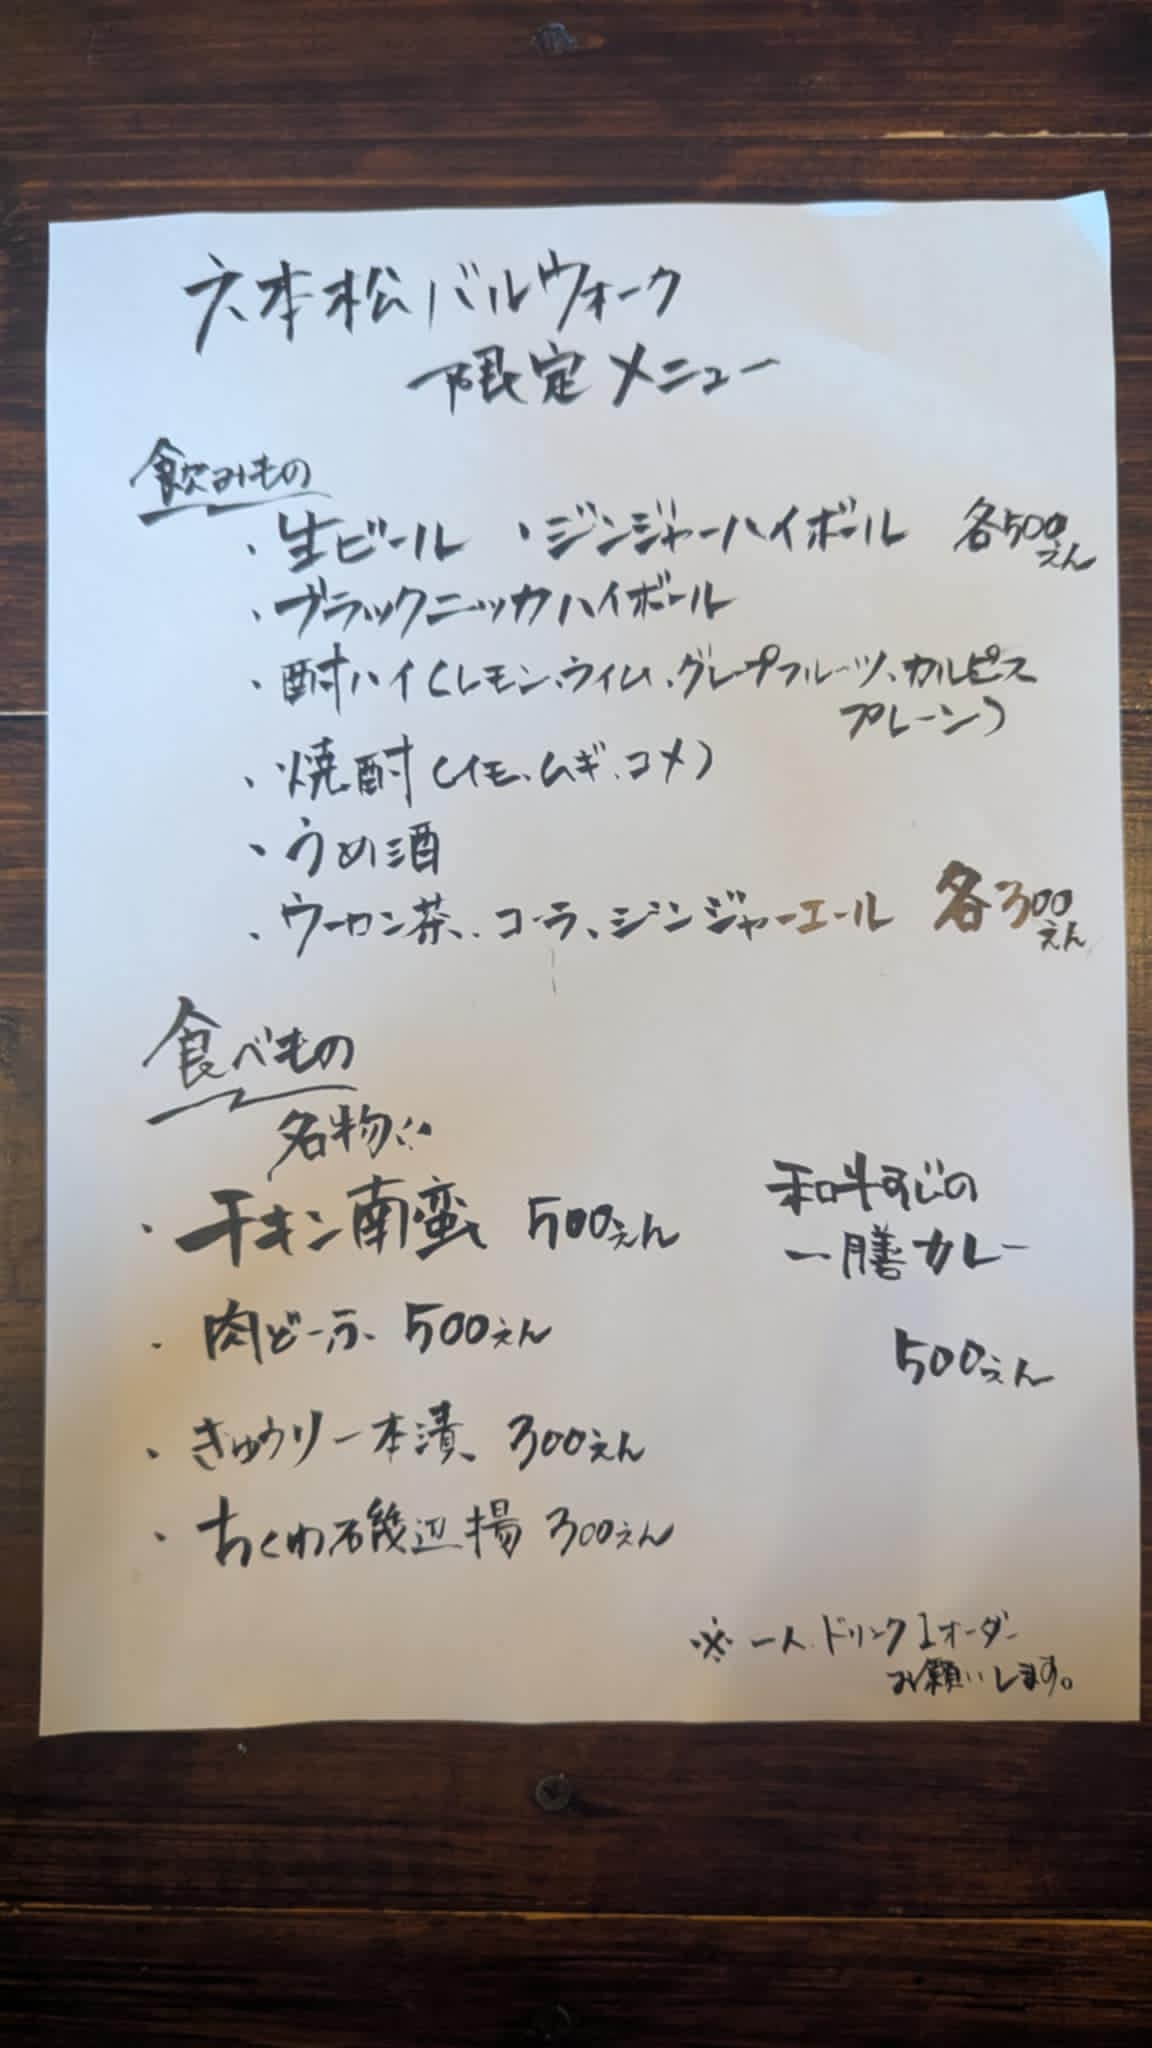 六本松バルウォーク
限定メニュー
飲みもの
・生ビール ・ジンジャーハイボール 各500えん
・ブラックニッカハイボール
・酎ハイ(レモン、ウィム、グレープフルーツ、カルピス
プレーン)
・焼酎(イモ、ムギ、コメ)
・うめ酒
・ウーロン茶、コーラ、ジンジャーエール 各300えん
食べもの
名物!!
・チキン南蛮 500えん
和牛すじの
一膳カレー
500えん
・肉どーふ 500えん
・きゅうり一本漬 300えん
・ちくわ磯辺揚 300えん
※一人、ドリンク1オーダー
お願いします。